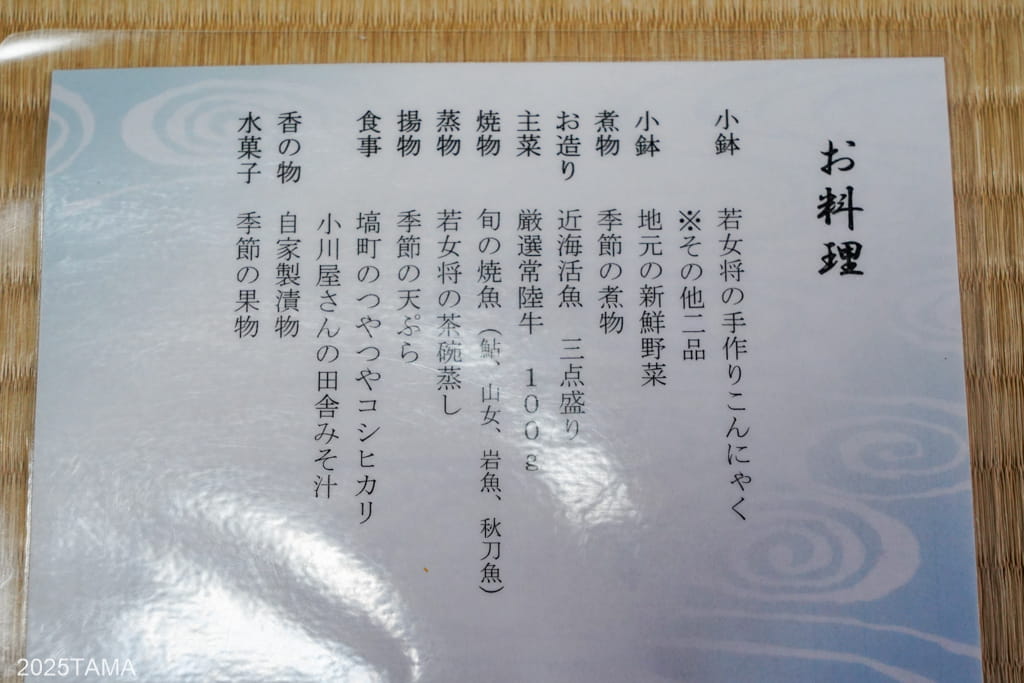 お料理
小鉢　若女将の手作りこんにゃく
※その他二品
小鉢　地元の新鮮野菜
煮物　季節の煮物
お造り　近海活魚　三点盛り
主菜　厳選常陸牛　100g
焼物　旬の焼魚（鮎、山女、岩魚、秋刀魚）
蒸物　若女将の茶碗蒸し
揚物　季節の天ぷら
食事　塙町のつやつやコシヒカリ
小川屋さんの田舎みそ汁
香の物　自家製漬物
水菓子　季節の果物
2025TAMA